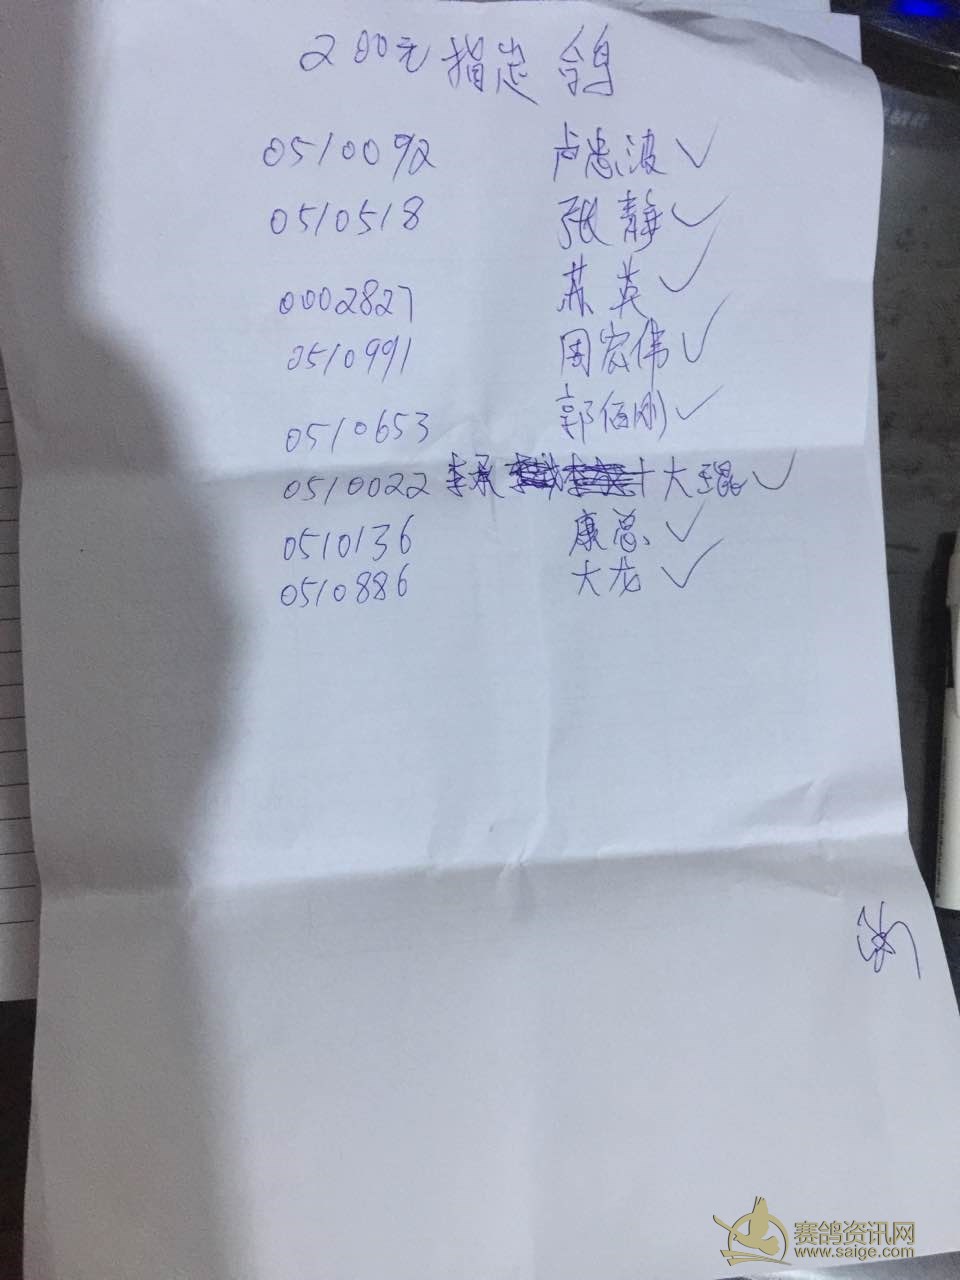 200元指定鸽
0510092 卢忠波 ✓
0510518 张静 ✓
0002827 苏英 ✓
0510991 周宏伟 ✓
0510653 郭佰刚 ✓
0510022 李承 十大琨 ✓
0510136 康总 ✓
0510886 大龙 ✓
赛鸽资讯网
www.saige.com